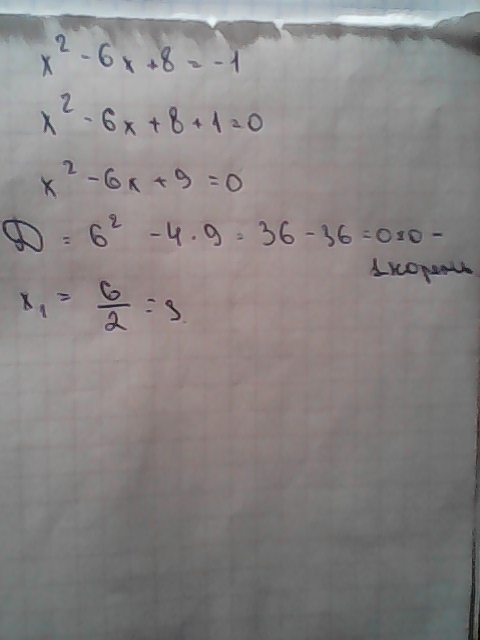 x² - 6x + 8 = -1
x² - 6x + 8 + 1 = 0
x² - 6x + 9 = 0
D = 6² - 4 · 9 = 36 - 36 = 0 = 0 -
1 корень
x₁ = 6/2 = 3.